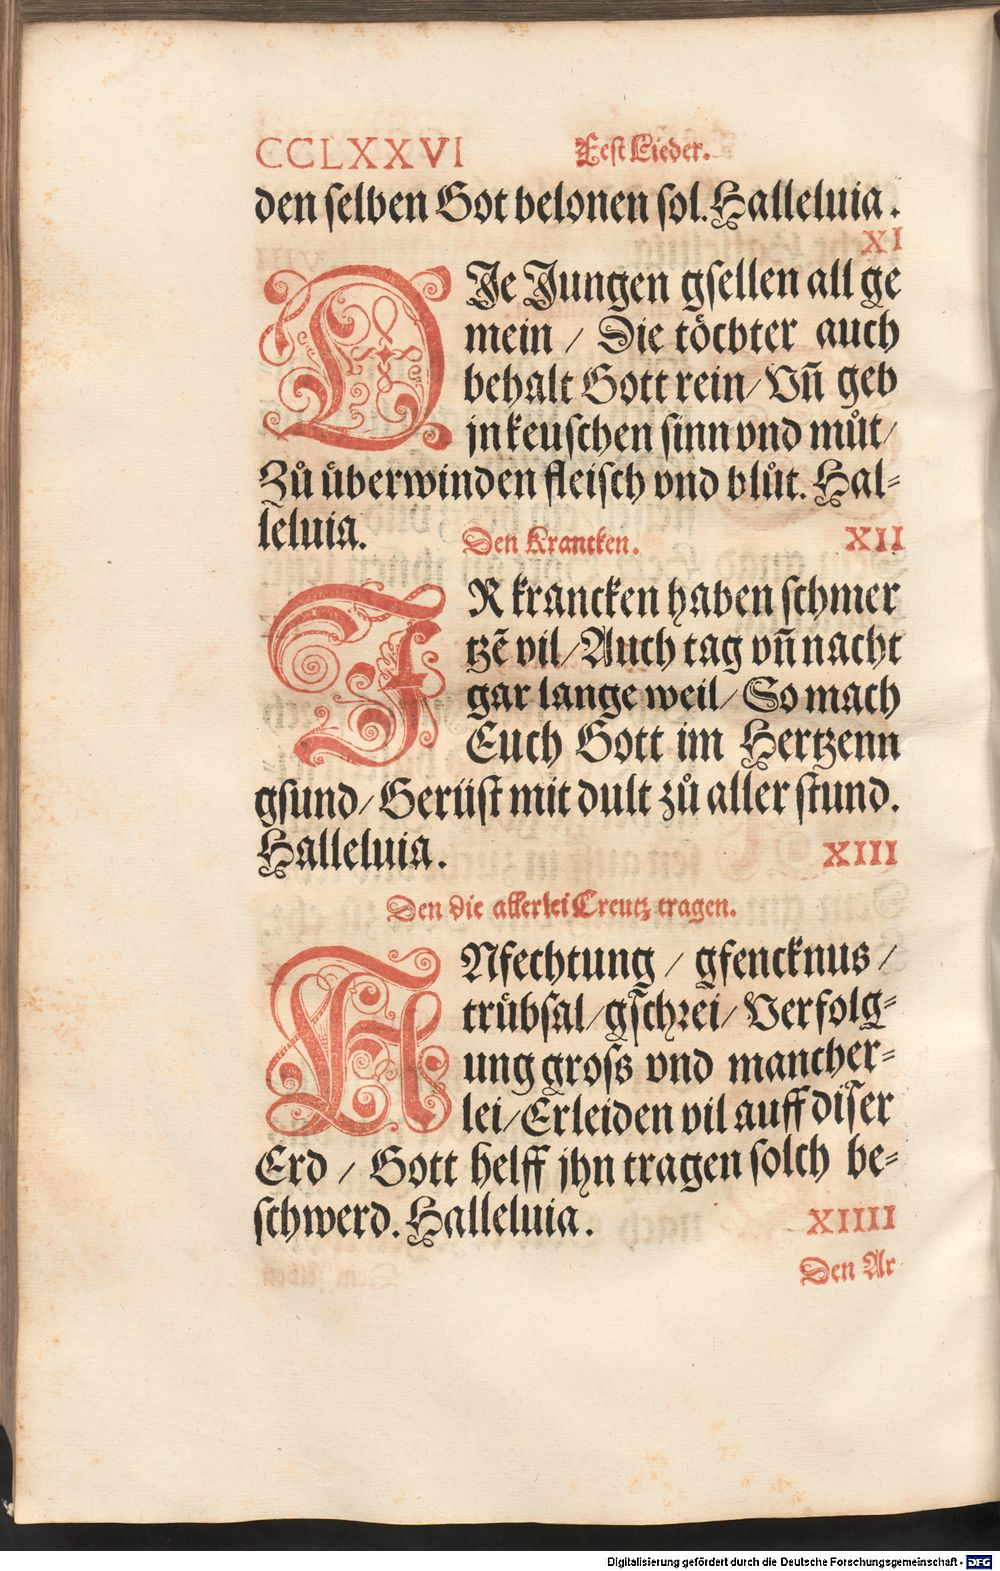 CCLXXVI Fest Lieder.
den selben Got belonen sol. Halleluia.
XI
DJe Jungen gsellen all ge
mein / Die töchter auch
behalt Gott rein / Vñ geb
jn keuschen sinn vnd můt /
Zů überwinden fleisch vnd blůt. Hal-
leluia. Den Krancken. XII
JR krancken haben schmer
tzẽ vil / Auch tag vñ nacht
gar lange weil / So mach
Euch Gott im Hertzenn
gsund / Gerüst mit dult zů aller stund.
Halleluia. XIII
Den die allerlei Creutz tragen.
ANfechtung / gfencknus /
trübsal / gschrei / Verfolg-
ung gross vnd mancher-
lei / Erleiden vil auff diser
Erd / Gott helff jhn tragen solch be-
schwerd. Halleluia. XIIII
Den Ar
Digitalisierung gefördert durch die Deutsche Forschungsgemeinschaft - DFG